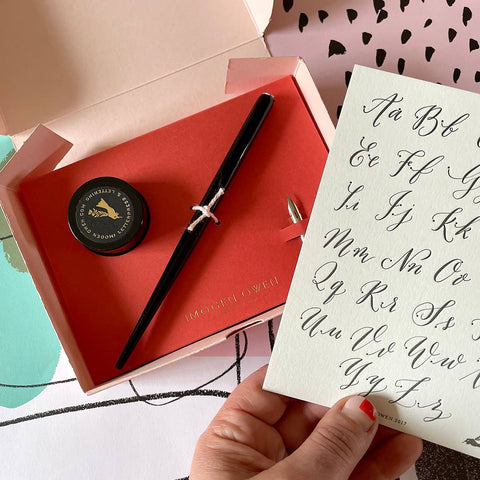 IMOGEN OWEN LETTERPRESS & LETTERING HQ
IMOGEN OWEN
Aa Bb
Ee Ff
Ii Jj Kk
Mm Nn Oo
Qq Rr Ss
Uu Vv Ww
Yy Zz
OWEN 2017